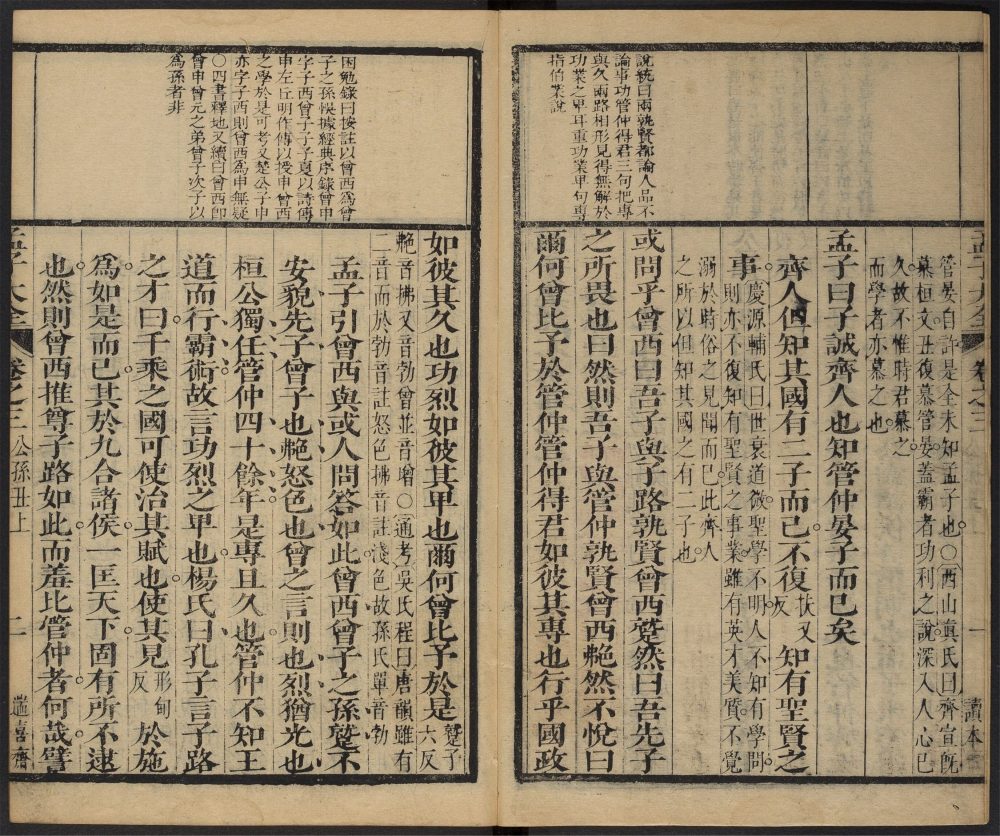 說統曰兩孰賢都論人品不
論事功管仲得君三句把專
與久兩路相形見得無解於
功業之卑耳重功業卑句專
指伯業說
孟子大全
卷之三
一
讀本
管晏自許是全未知孟子也○西山真氏曰齊宣旣
慕桓文丑復慕管晏蓋霸者功利之說深入人心已
久故不惟時君慕之
而學者亦慕之也
孟子曰子誠齊人也知管仲晏子而已矣
齊人但知其國有二子而已不復扶又反知有聖賢之
事慶源輔氏曰世衰道微聖學不明人不知有學問
事則亦不復知有聖賢之事業雖有英才美質不覺
溺於時俗之見聞而已此齊人
之所以但知其國之有二子也
或問乎曾西曰吾子與子路孰賢曾西蹵然曰吾先子
之所畏也曰然則吾子與管仲孰賢曾西艴然不悅曰
爾何曾比予於管仲管仲得君如彼其專也行乎國政
困勉錄曰按註以曾西爲曾
子之孫悞據經典序錄曾申
字子西曾子子子夏以詩傳
申左丘明作傳以授申曾西
之學於是可考又楚公子申
亦字子西則曾西爲申無疑
○四書釋地又續曰曾西卽
曾申曾元之弟曾子次子以
爲孫者非
如彼其久也功烈如彼其卑也爾何曾比予於是蹵子六反
艴音拂又音勃曾並音增○通考吳氏程曰唐韻雖有
二音而於勃音註怒色拂音註淺色故孫氏單音勃
孟子引曾西與或人問答如此曾西曾子之孫蹵不
安貌先子曾子也艴怒色也曾之言則也烈猶光也
桓公獨任管仲四十餘年是專且久也管仲不知王
道而行霸術故言功烈之卑也楊氏曰孔子言子路
之才曰千乘之國可使治其賦也使其見形甸反於施
爲如是而已其於九合諸侯一匡天下固有所不逮
也然則曾西推尊子路如此而羞比管仲者何哉譬
孟子大全
卷之三
公孫丑上
二
喜齋